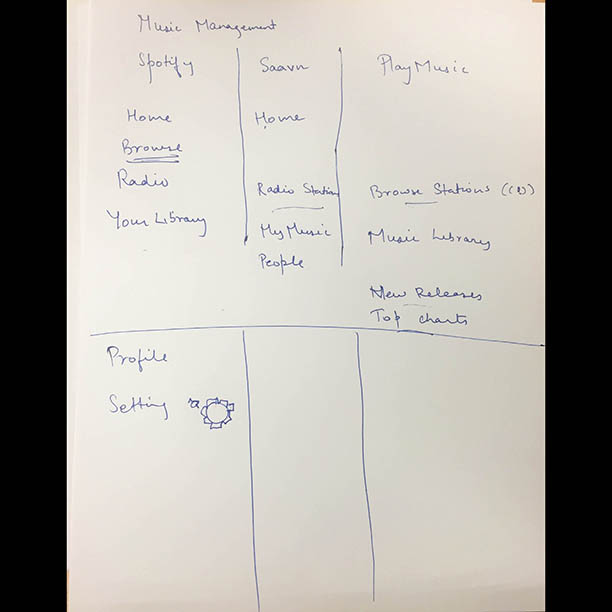 Music Management
Spotify Saavn PlayMusic
Home Home
Browse
Radio Radio Station Browse Stations
Your Library My Music Music Library
People
New Releases
Top charts
Profile
Setting